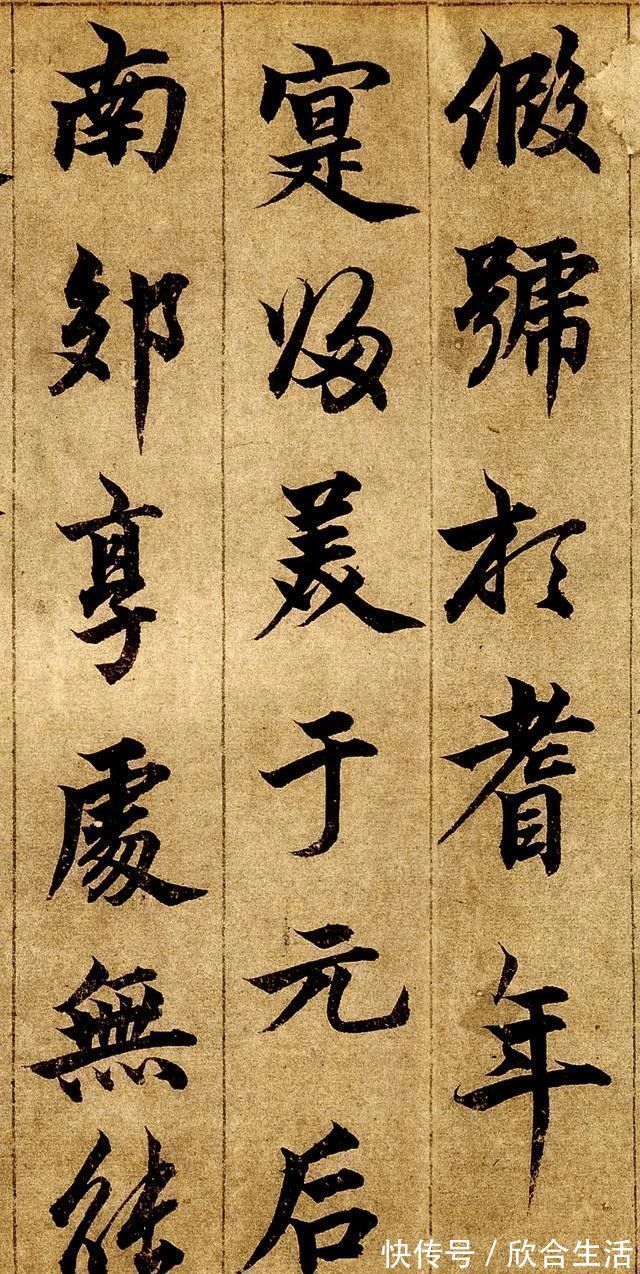 假號於耆年
寔歸美于元后
南鄉享處無能
快传号／欣合生活